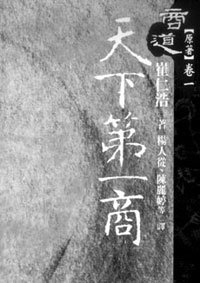 商道
【原著】卷一
崔仁浩
著
楊人從、陳麗婷等 譯
天下第一商